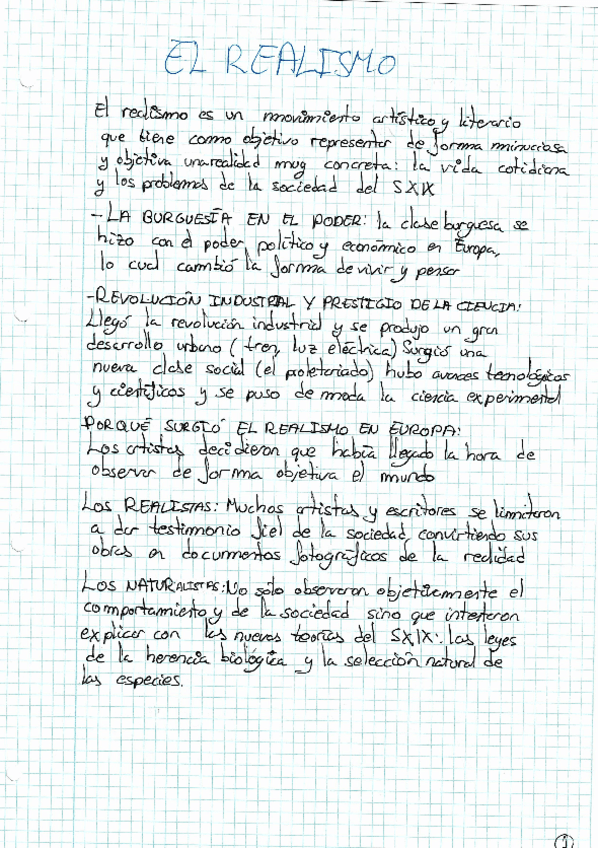 EL REALISMO
El realismo es un movimiento artístico y literario
que tiene como objetivo representar de forma minuciosa
y objetiva una realidad muy concreta: la vida cotidiana
y los problemas de la sociedad del SXIX
- LA BURGUESÍA EN EL PODER: la clase burguesa se
hizo con el poder político y económico en Europa,
lo cual cambió la forma de vivir y pensar
- REVOLUCIÓN INDUSTRIAL Y PRESTIGIO DE LA CIENCIA:
Llegó la revolución industrial y se produjo un gran
desarrollo urbano (tren, luz eléctrica) Surgió una
nueva clase social (el proletariado) hubo avances tecnológicos
y científicos y se puso de moda la ciencia experimental
PORQUÉ SURGIÓ EL REALISMO EN EUROPA:
Los artistas decidieron que había llegado la hora de
observar de forma objetiva el mundo
LOS REALISTAS: Muchos artistas y escritores se limitaron
a dar testimonio fiel de la sociedad, convirtiendo sus
obras en documentos fotográficos de la realidad
LOS NATURALISTAS: No solo observaron objetivamente el
comportamiento y de la sociedad sino que intentaron
explicar con las nuevas teorías del SXIX: las leyes
de la herencia biológica y la selección natural de
las especies.
1